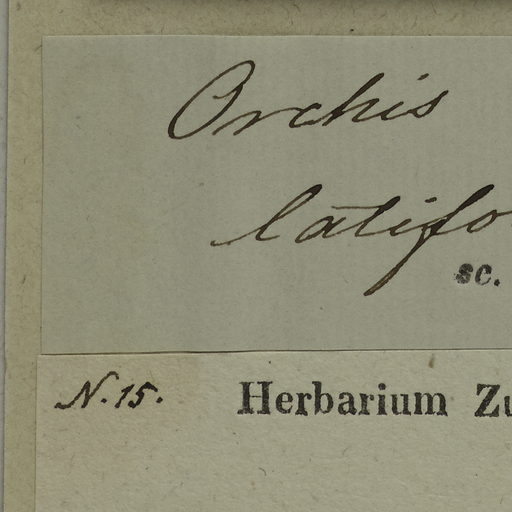 Orchis
latifo
sc.
N. 15. Herbarium Zu